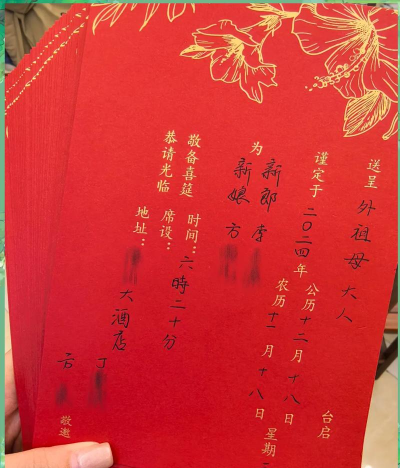 送呈 外祖母 大人 台启
谨定于 二〇二四年 公历 十二月 十八日 星期
农历 十一月 十八日
为 新郎 李
新娘 方
敬备喜筵 时间：六時二十分
恭请光临 席设：
地址： 大酒店
丁
方 敬邀